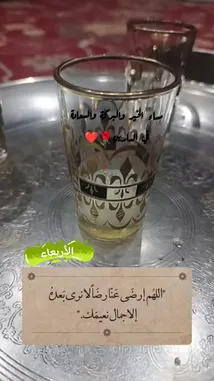 مساء الخير والبركة والسعادة
الأربعاء
"اللهم إرضَى عَنّا رضاً لا نرى بَعدهُ
إلا جمال نعيمك."